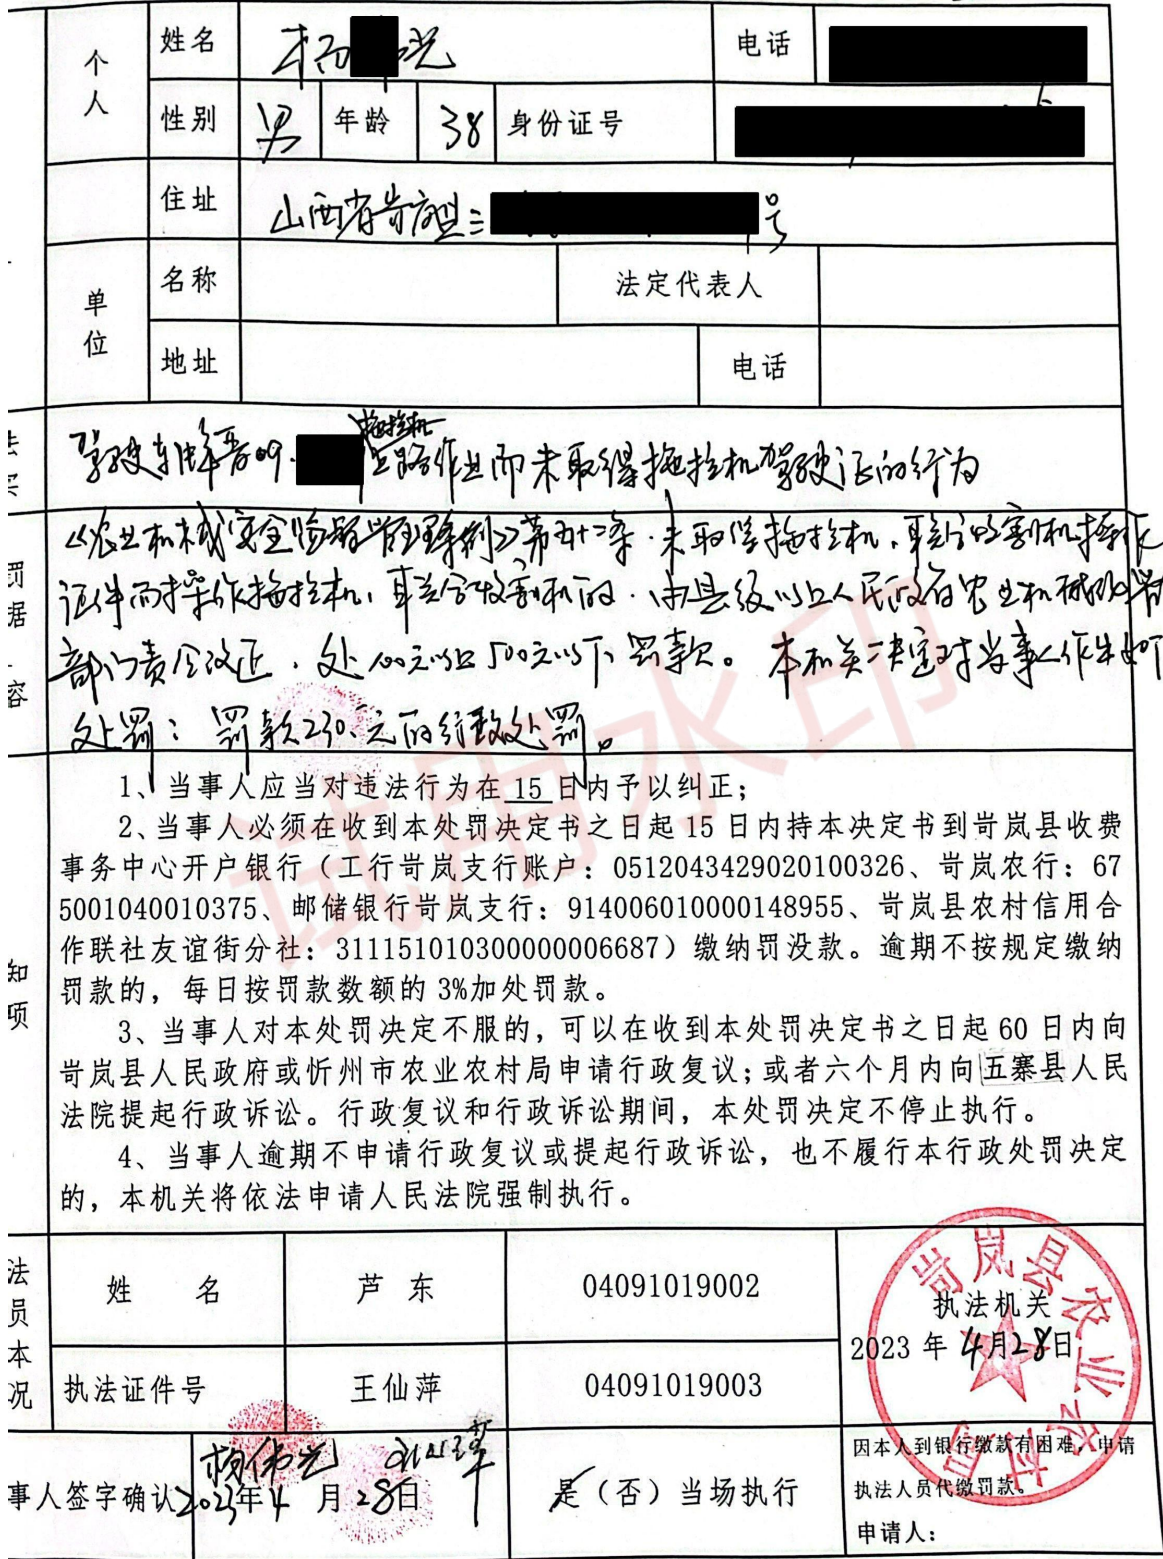 个人 姓名 杨 光 电话
性别 男 年龄 38 身份证号
住址 山西省岢岚县三 号
单位 名称 法定代表人
地址 电话
法
实
拖拉机
驾驶车牌晋09. 上路作业而未取得拖拉机驾驶证的行为
罚
据
容
《农业机械安全监督管理条例》第五十二条.未取得拖拉机、联合收割机操作
证件而操作拖拉机、联合收割机的.由县级以上人民政府农业机械化主管
部门责令改正、处100元以上500元以下罚款。 本机关决定对当事人作出如下
处罚:罚款230.元的行政处罚。
知
项
1、当事人应当对违法行为在 15 日内予以纠正;
2、当事人必须在收到本处罚决定书之日起 15 日内持本决定书到岢岚县收费
事务中心开户银行(工行岢岚支行账户:0512043429020100326、岢岚农行:67
5001040010375、邮储银行岢岚支行:914006010000148955、岢岚县农村信用合
作联社友谊街分社:311151010300000006687)缴纳罚没款。逾期不按规定缴纳
罚款的,每日按罚款数额的 3%加处罚款。
3、当事人对本处罚决定不服的,可以在收到本处罚决定书之日起 60 日内向
岢岚县人民政府或忻州市农业农村局申请行政复议;或者六个月内向五寨县人民
法院提起行政诉讼。行政复议和行政诉讼期间,本处罚决定不停止执行。
4、当事人逾期不申请行政复议或提起行政诉讼,也不履行本行政处罚决定
的,本机关将依法申请人民法院强制执行。
试用水印
法
员
本
况
姓 名 芦 东 04091019002
执法证件号 王仙萍 04091019003
岢岚县农业农村局
执法机关
2023 年 4月28日
事人签字确认 杨伟光
2023年4月28日
是(否)当场执行
因本人到银行缴款有困难,申请
执法人员代缴罚款。
申请人: